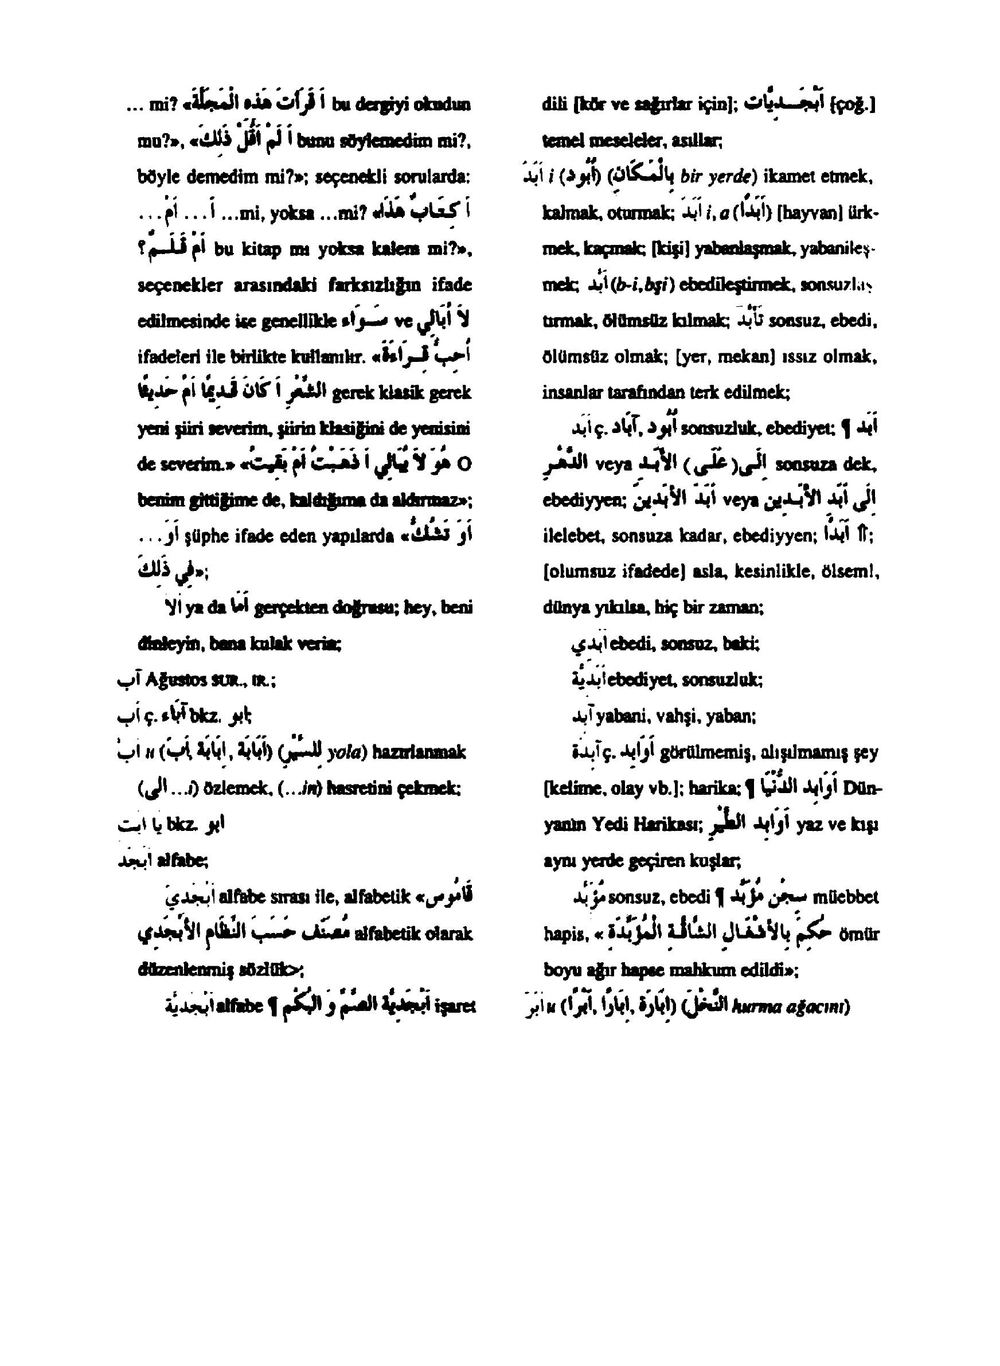 ... mi? «أ قَرَأتَ هَذه الْمَجَلّةَ bu dergiyi okudun
mu?», «أ لَمْ أقُلْ ذلكَ bunu söylemedim mi?,
böyle demedim mi?»; seçenekli sorularda:
أ... أمْ... ...mi, yoksa ...mi? «أ كتَابٌ هَذَا
أمْ قَلَمٌ؟ bu kitap mı yoksa kalem mi?»,
seçenekler arasındaki farksızlığın ifade
edilmesinde ise genellikle سَوَاء ve لاَ أبَالي
ifadeleri ile birlikte kullanılır. «أحبُّ قرَاءَةَ
الشّعْر أ كَانَ قَديمًا أمْ حَديثًا gerek klasik gerek
yeni şiiri severim, şiirin klasiğini de yenisini
de severim.» «هُوَ لاَ يُبَالي أ ذَهَبْتُ أمْ بَقيتُ O
benim gittiğime de, kaldığıma da aldırmaz»;
أوَ... şüphe ifade eden yapılarda «أوَ تَشُكُّ
في ذلكَ»;
ألا ya da أمَا gerçekten doğrusu; hey, beni
dinleyin, bana kulak verin;
آب Ağustos SUR., IR.;
أب ç. آبَاء bkz. ابو;
أبّ u (أبّ, أبَابَة, أبَابًا) (للسَّيْر yola) hazırlanmak
(الى ...i) özlemek, (...in) hasretini çekmek;
يا ابت bkz. ابو
ابجد alfabe;
أبْجَديّ alfabe sırası ile, alfabetik «قَامُوس
مُصَنّف حَسَبَ النّظَام الأبْجَدي alfabetik olarak
düzenlenmiş sözlük»;
أبْجَديّة alfabe ¶ أبْجَديّة الصّمّ و البُكْم işaret
dili [kör ve sağırlar için]; أبْجَديّات [çoğ.]
temel meseleler, asıllar;
أبَدَ i (أبُود) (بالْمَكَان bir yerde) ikamet etmek,
kalmak, oturmak; أبَدَ i, a (أبَدًا) [hayvan] ürk-
mek, kaçmak; [kişi] yabanlaşmak, yabanileş-
mek; أبّدَ (b-i, bşi) ebedileştirmek, sonsuzlaş
tırmak, ölümsüz kılmak; تَأبّدَ sonsuz, ebedi,
ölümsüz olmak; [yer, mekan] ıssız olmak,
insanlar tarafından terk edilmek;
أبَد ç. آبَاد, أبُود sonsuzluk, ebediyet; ¶ أبَدَ
الدّهْر veya إلَى (عَلَى) الأبَد sonsuza dek,
ebediyyen; أبَدَ الأبَدينَ veya إلَى أبَد الأبَدين
ilelebet, sonsuza kadar, ebediyyen; أبَدًا ⇑;
[olumsuz ifadede] asla, kesinlikle, ölsem!,
dünya yıkılsa, hiç bir zaman;
أبَدي ebedi, sonsuz, baki;
أبَديّة ebediyet, sonsuzluk;
آبد yabani, vahşi, yaban;
آبدَة ç. أوَابد görülmemiş, alışılmamış şey
[kelime, olay vb.]; harika; ¶ أوَابد الدّنْيَا Dün-
yanın Yedi Harikası; أوَابد الطّيْر yaz ve kışı
aynı yerde geçiren kuşlar;
مُؤَبّد sonsuz, ebedi ¶ سجن مُؤَبّد müebbet
hapis, «حُكمَ بالأشْغَال الشّاقّة الْمُؤَبّدَة ömür
boyu ağır hapse mahkum edildi»;
أبَرَ u (أبْرًا, إبَارًا, إبَارَة) (النّخْلَ hurma ağacını)